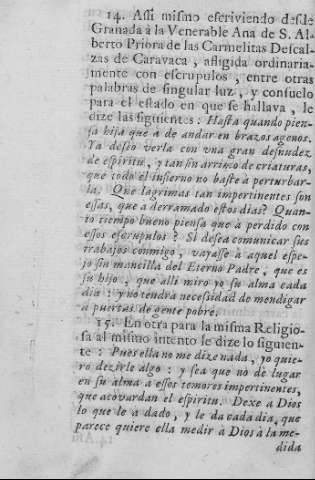 14. Assi mismo escriviendo desde
Granada à la Venerable Ana de S. Al-
berto Priora de las Carmelitas Descal-
zas de Caravaca, afligida ordinaria-
mente con escrupulos, entre otras
palabras de singular luz, y consuelo
para el estado en que se hallava, le
dize las siguientes: Hasta quando pien-
sa hija que à de andar en brazos agenos.
Ya deseo verla con vna gran desnudez
de espiritu, y tan sin arrimo de criaturas,
que todo el infierno no baste à perturbar-
la. Que lagrimas tan impertinentes son
essas, que a derramado estos dias? Quan-
to tiempo bueno piensa que à perdido con
essos escrupulos? Si desea comunicar sus
trabajos conmigo, vayasse à aquel espe-
jo sin mancilla del Eterno Padre, que es
su hijo, que alli miro yo su alma cada
dia: y no tendrà necesidad de mendigar
à puertas de gente pobre.
15. En otra para la misma Religio-
sa al mismo intento le dize lo siguien-
te: Pues ella no me dize nada, yo quie-
ro dezirle algo: y sea que no de lugar
en su alma a essos temores impertinentes,
que acovardan el espiritu. Dexe a Dios
lo que le a dado, y le da cada dia, que
parece quiere ella medir à Dios à la me-
dida